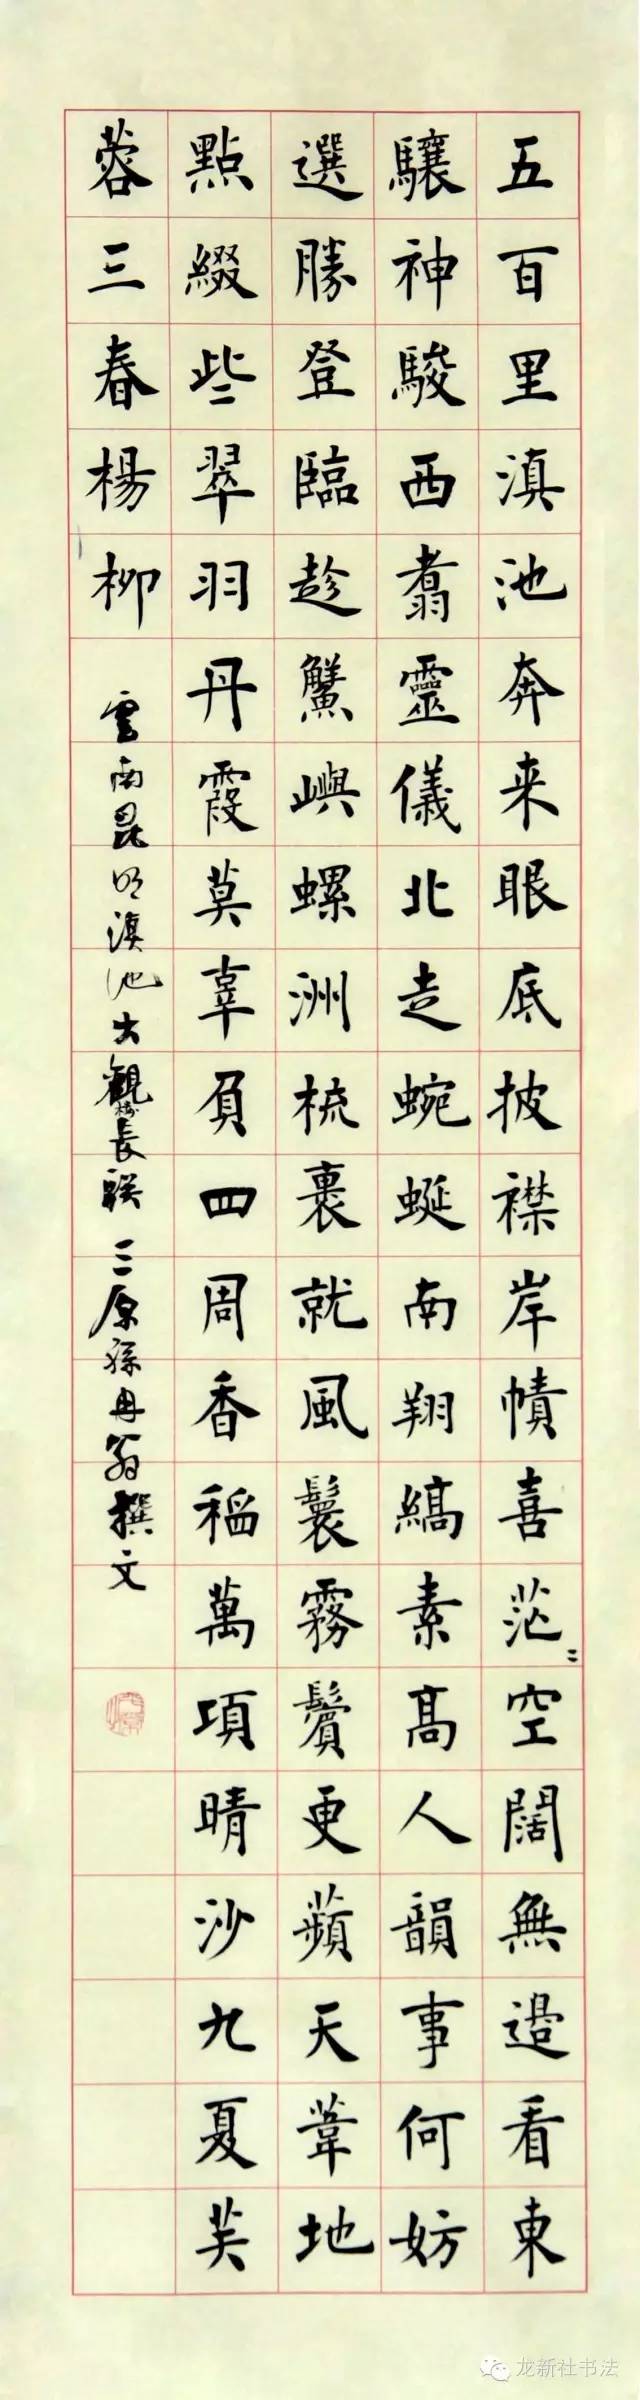 五百里滇池奔来眼底披襟岸幘喜茫〻空闊無邊看東
驤神駿西翥靈儀北走蜿蜒南翔縞素髙人韻事何妨
選勝登臨趁蟹嶼螺洲梳裹就風鬟霧鬢更蘋天葦地
點綴些翠羽丹霞莫辜負四周香稻萬項晴沙九夏芙
蓉三春楊柳
雲南昆明滇池大觀樓長联 三原孫冉翁撰文
龙新社书法